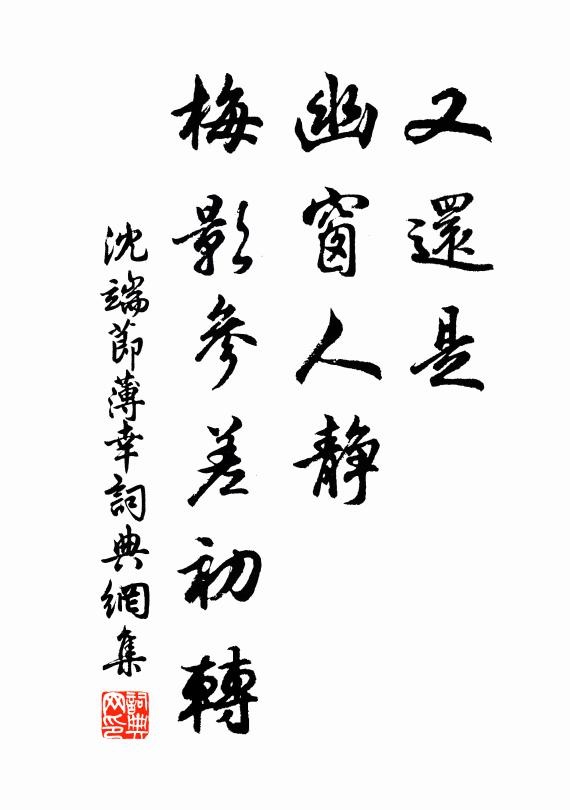 又還是
幽窗人靜
梅影參差初轉
沈端節薄幸詞典網集
詞典网印